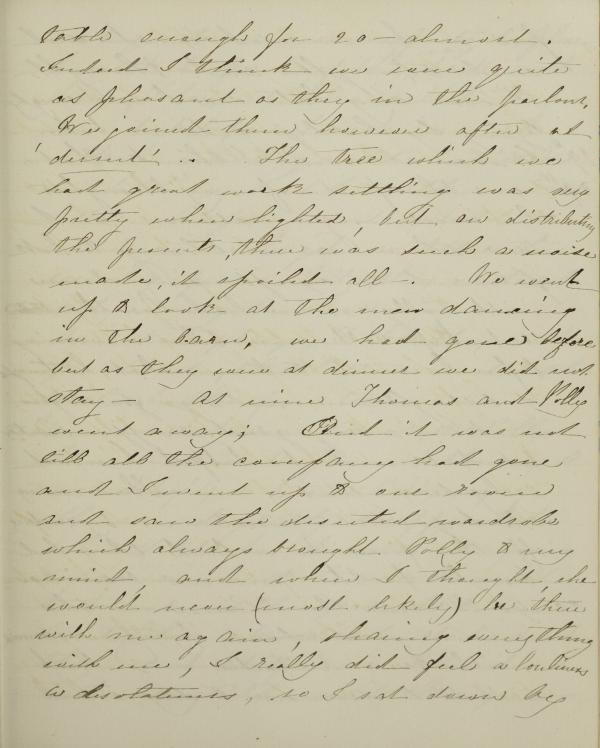 table enough for 20 - almost.
Indeed I think we were quite
as pleasant as they in the parlour.
We joined them however after at
'desert'.. The tree which we
had great work settling was very
pretty when lighted, but on distributing
the presents, there was such a noise
made, it spoiled all -. We went
up to look at the men dancing
in the barn, we had gone before
but as they were at dinner we did not
stay - At nine Thomas and Polly
went away; And it was not
till all the company had gone
and I went up to our room
and saw the deserted wardrobe
which always brought Polly to my
mind, and when I thought, she
would never (most likely) be there
with me again, sharing everything
with me, I really did feel a lonliness
a desolateness, so I sat down by